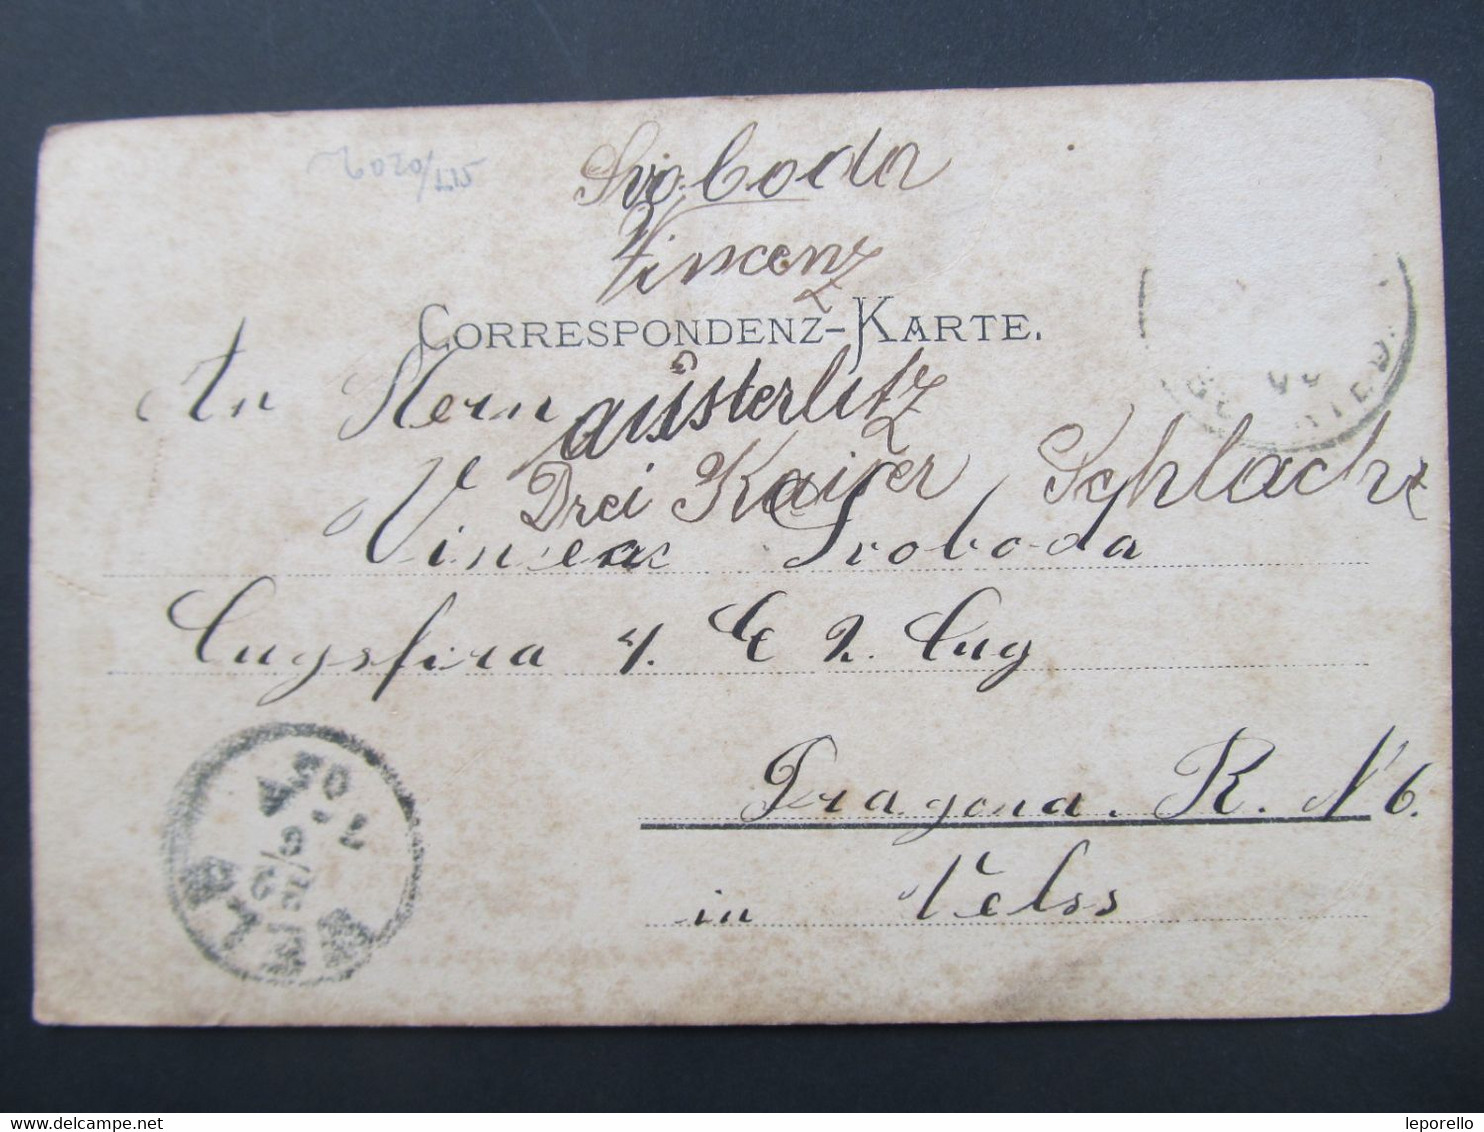 Svoboda
Vincenz
CORRESPONDENZ-KARTE.
An Herrn
austerlitz
Drei Kaiser Schlacht
Vincenc Svoboda
Zugsfira 4. E 2. Zug
Dragona. R. N 6.
in Velss
WELS
leporello